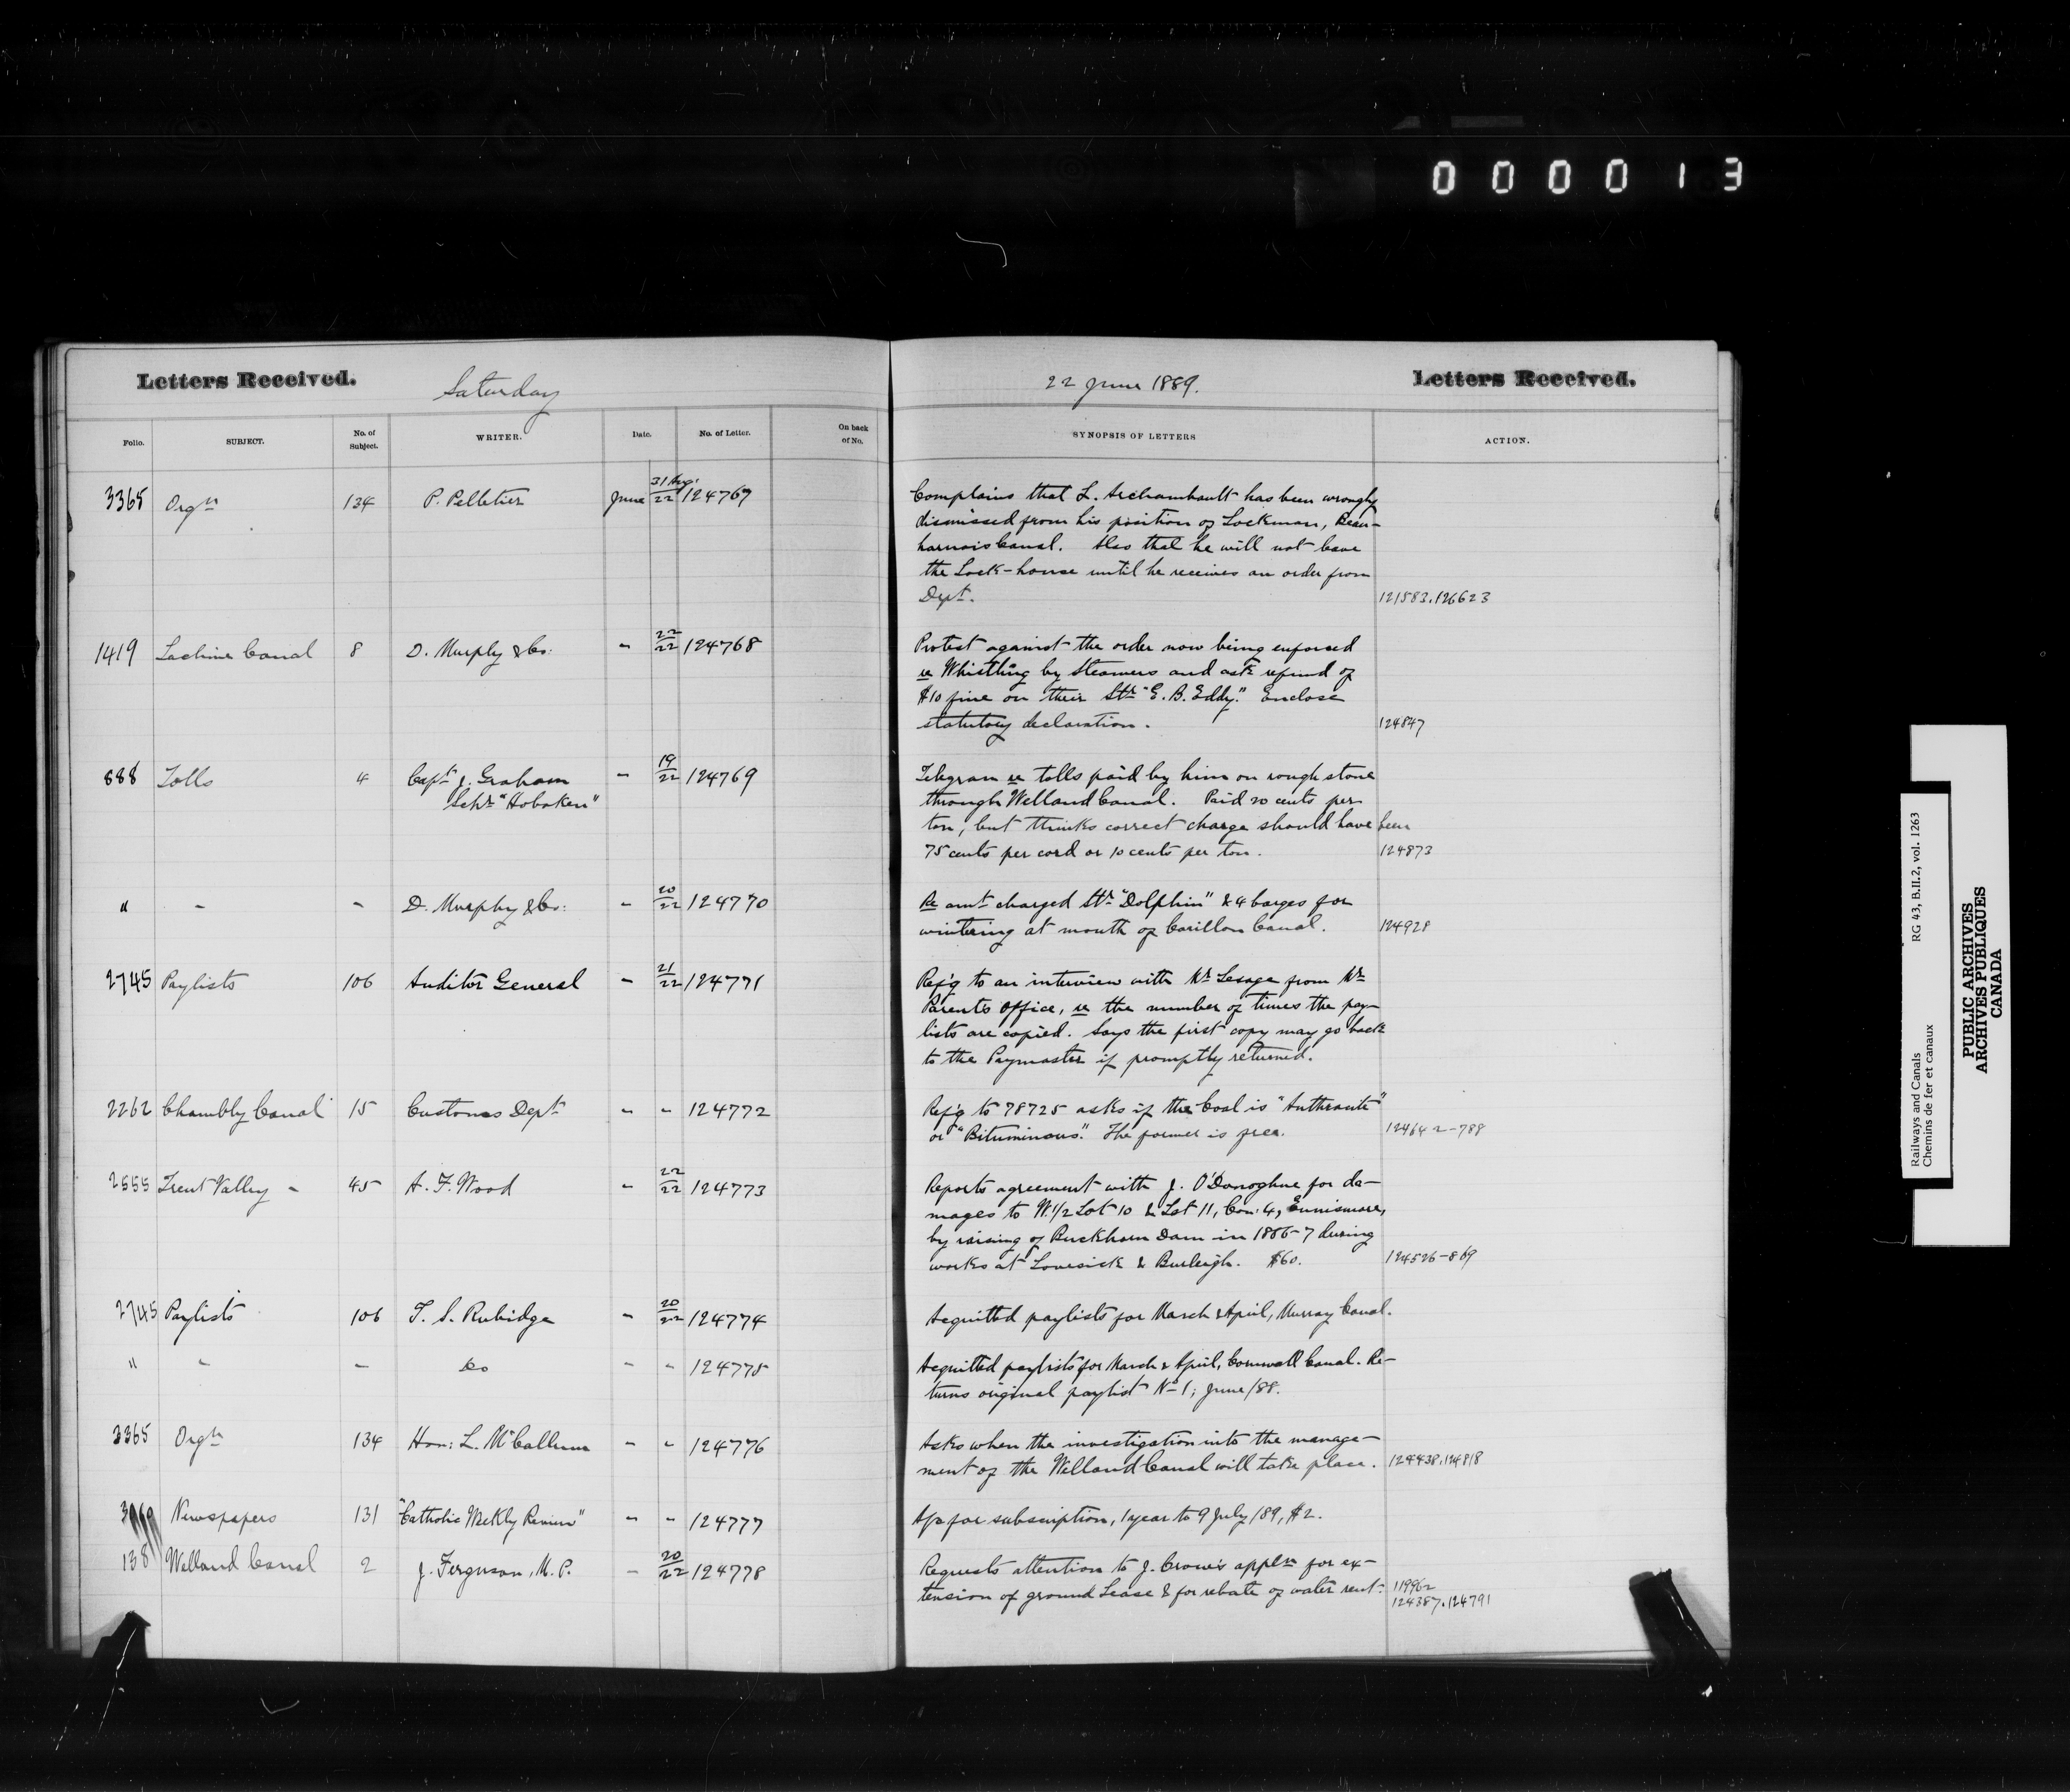 0 0 0 0 1 3
Letters Received. Saturday 22 June 1889. Letters Received.
Folio. SUBJECT. No. of Subject. WRITER. Date. No. of Letter. On back of No. SYNOPSIS OF LETTERS ACTION.
3365 Orgn 134 P. Pelletier June 31 Augt/22 124767 Complains that L. Archambault has been wrongly
dismissed from his position of Lockman, Beau-
harnois Canal. Also that he will not leave
the Lock-house until he receives an order from
Dept. 121583.126623
1419 Lachine Canal 8 D. Murphy & Co: - 22/22 124768 Protest against the order now being enforced
re Whistling by Steamers and ask refund of
$10 fine on their Str "E. B. Eddy." Enclose
statutory declaration. 124847
688 Tolls 4 Capt J. Graham - 19/22 124769 Telegram re tolls paid by him on rough stone
Schr "Hoboken" through Welland Canal. Paid 20 cents per
ton, but thinks correct charge should have been
75 cents per cord or 10 cents per ton. 124873
" - - D. Murphy & Co: - 20/22 124770 Re amt charged Str "Dolphin" & 4 barges for
wintering at mouth of Carillon Canal. 124928
2745 Paylists 106 Auditor General - 21/22 124771 Refg to an interview with Mr Lesage from Mr
Parent's Office, re the number of times the pay-
lists are copied. Says the first copy may go back
to the Paymaster if promptly returned.
2262 Chambly Canal 15 Customs Dept - - 124772 Refg to 78725 asks if the Coal is "Anthracite"
or "Bituminous". The former is free. 124642-788
2555 Trent Valley - 45 A. F. Wood - 22/22 124773 Reports agreement with J. O'Donoghue for da-
mages to W.1/2 Lot 10 & Lot 11, Con: 4, Ennismore,
by raising of Buckhorn Dam in 1886-7 during
works at Lovesick & Burleigh. $60. 124526-869
2745 Paylists 106 T. S. Rubidge - 20/22 124774 Acquitted paylists for March & April, Murray Canal.
" - - do - - 124775 Acquitted paylists for March & April, Cornwall Canal. Re-
turns original paylist No 1, June/88.
3365 Orgn 134 Hon: L. McCallum - - 124776 Asks when the investigation into the manage-
ment of the Welland Canal will take place. 124438.124818
Newspapers 131 "Catholic Weekly Review" - - 124777 A/c for subscription, 1 year to 9 July/89, $2.
138 Welland Canal 2 J. Ferguson, M. P. - 20/22 124778 Requests attention to J. Crow's appln for ex-
tension of ground Lease & for rebate of water rent. 119962
124387.124791
Railways and Canals RG 43, B.II.2, vol. 1263
Chemins de fer et canaux
PUBLIC ARCHIVES
ARCHIVES PUBLIQUES
CANADA